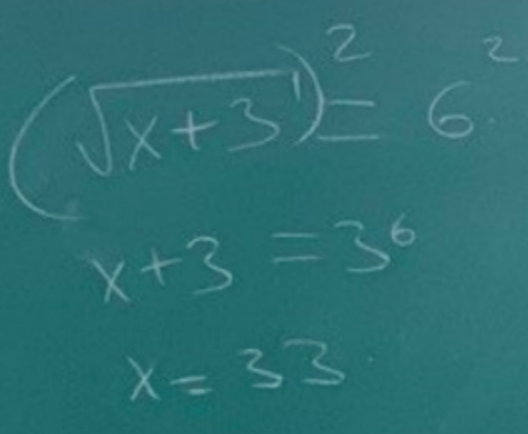 (√(x+3))² = 6²
x+3 = 36
x = 33